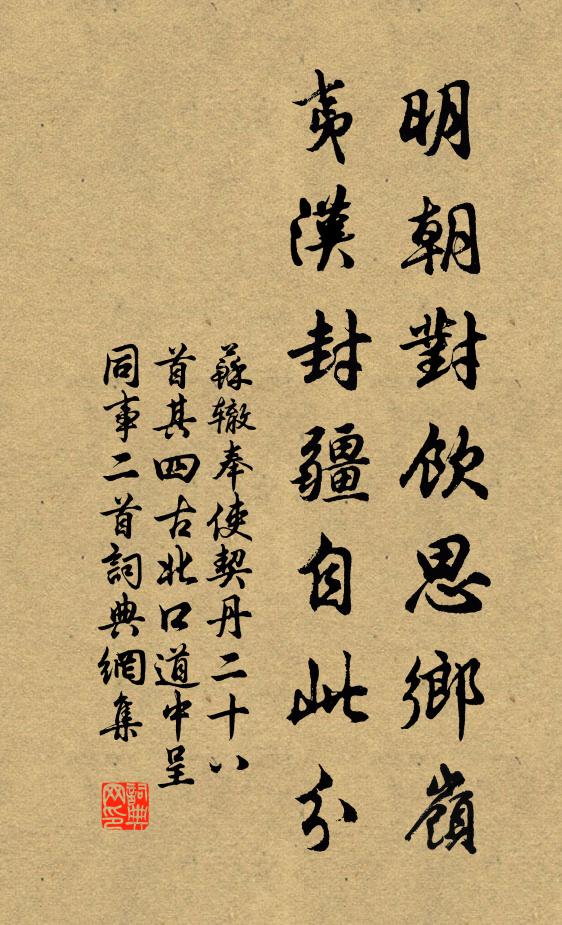 明朝對飲思鄉嶺
夷漢封疆自此分
蘇辙奉使契丹二十八
首其四古北口道中呈
同事二首詞典網集
詞典网印